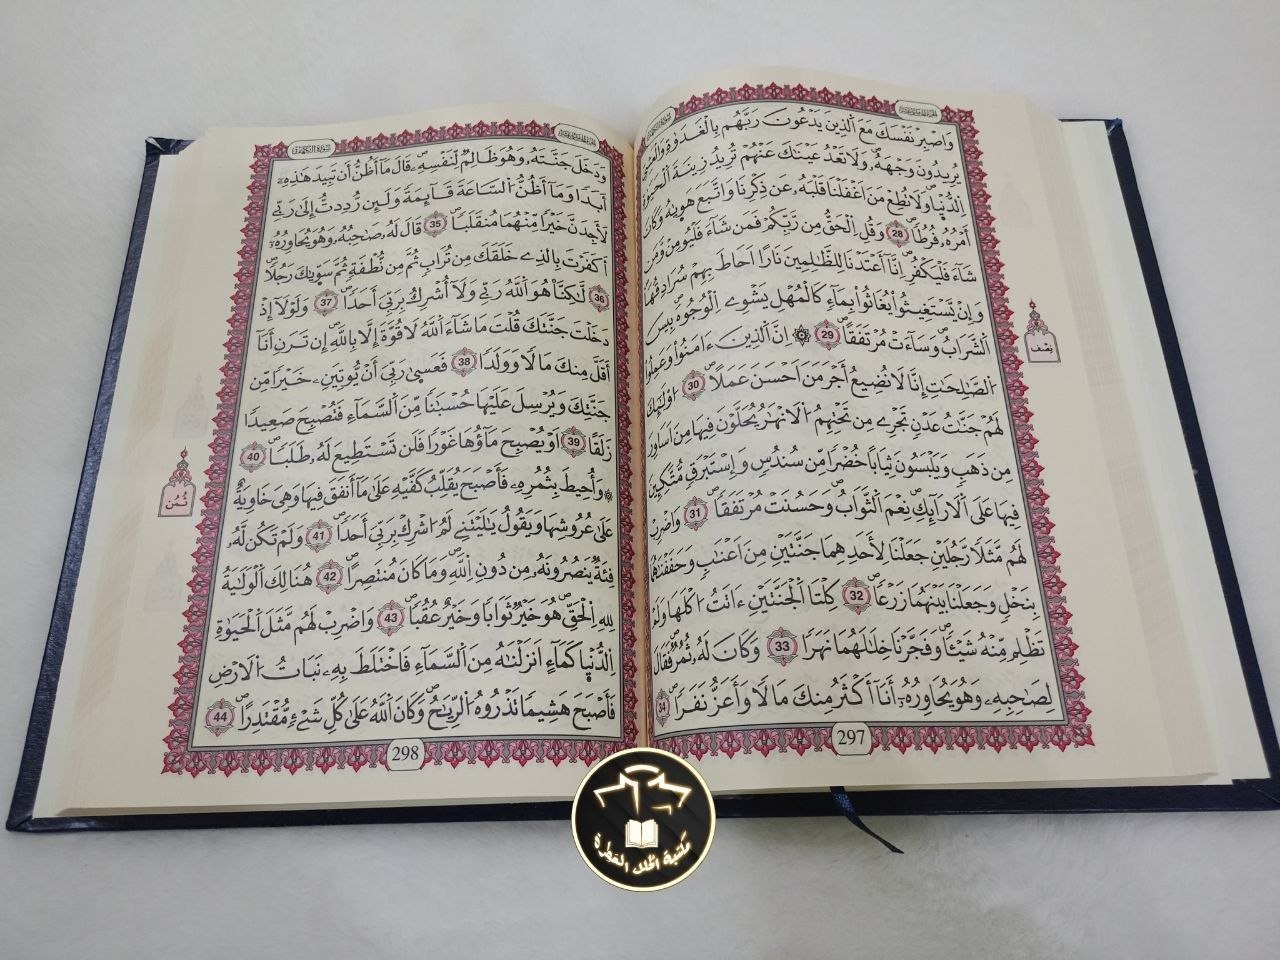 وَاصْبِرْ نَفْسَكَ مَعَ اَ۬لذِينَ يَدْعُونَ رَبَّهُم بِالْغَدَوٰةِ وَالْعَشِيِّ
يُرِيدُونَ وَجْهَهُۥ وَلَا تَعْدُ عَيْنَٰكَ عَنْهُمْ تُرِيدُ زِينَةَ اَ۬لْحَيَوٰةِ
اِ۬لدُّنْي۪ا وَلَا تُطِعْ مَنَ اَغْفَلْنَا قَلْبَهُۥ عَن ذِكْرِنَا وَاتَّبَعَ هَو۪يٰهُ وَكَانَ
أَمْرُهُۥ فُرُطاٗ 28 وَقُلِ اِ۬لْحَقُّ مِن رَّبِّكُمْ فَمَن شَآءَ فَلْيُومِن وَمَن
شَآءَ فَلْيَكْفُرِ اِنَّآ أَعْتَدْنَا لِلظَّٰلِمِينَ نَاراً اَحَاطَ بِهِمْ سُرَادِقُهَا
وَإِنْ يَّسْتَغِيثُواْ يُغَاثُواْ بِمَآءٖ كَالْمُهْلِ يَشْوِے اِ۬لْوُجُوهَ بِيسَ
اَ۬لشَّرَابُ وَسَآءَتْ مُرْتَفَقاً 29 ۞ اِنَّ اَ۬لذِينَ ءَامَنُواْ وَعَمِلُواْ
اُ۬لصَّٰلِحَٰتِ إِنَّا لَا نُضِيعُ أَجْرَ مَنَ اَحْسَنَ عَمَلاً 30 اُوْلَٰٓئِكَ
لَهُمْ جَنَّٰتُ عَدْنٖ تَجْرِے مِن تَحْتِهِمُ اُ۬لَانْهَٰرُ يُحَلَّوْنَ فِيهَا مِنَ اَسَاوِرَ
مِن ذَهَبٖ وَيَلْبَسُونَ ثِيَاباً خُضْراٗ مِّن سُندُسٖ وَإِسْتَبْرَقٖ مُّتَّكِـِٕينَ
فِيهَا عَلَى اَ۬لَارَآئِكِ نِعْمَ اَ۬لثَّوَابُ وَحَسُنَتْ مُرْتَفَقاٗ 31 وَاضْرِبْ
لَهُم مَّثَلاٗ رَّجُلَيْنِ جَعَلْنَا لِأَحَدِهِمَا جَنَّتَيْنِ مِنَ اَعْنَٰبٖ وَحَفَفْنَٰهُمَا
بِنَخْلٖ وَجَعَلْنَا بَيْنَهُمَا زَرْعاٗ 32 كِلْتَا اَ۬لْجَنَّتَيْنِ ءَاتَتُ ا۟كْلَهَا وَلَمْ
تَظْلِم مِّنْهُ شَيْـٔاٗ وَفَجَّرْنَا خِلَٰلَهُمَا نَهَراٗ 33 وَكَانَ لَهُۥ ثُمُرٞ فَقَالَ
لِصَٰحِبِهِۦ وَهُوَ يُحَاوِرُهُۥٓ أَنَآ أَكْثَرُ مِنكَ مَالاٗ وَأَعَزُّ نَفَراٗ 34
297
نصف
سورة الكهف
وَدَخَلَ جَنَّتَهُۥ وَهُوَ ظَالِمٞ لِّنَفْسِهِۦ قَالَ مَآ أَظُنُّ أَن تَبِيدَ هَٰذِهِۦٓ
أَبَداٗ وَمَآ أَظُنُّ اُ۬لسَّاعَةَ قَآئِمَةٗ وَلَئِن رُّدِدتُّ إِلَىٰ رَبِّے
لَأَجِدَنَّ خَيْراٗ مِّنْهُمَا مُنقَلَباٗ 35 قَالَ لَهُۥ صَٰحِبُهُۥ وَهُوَ يُحَاوِرُهُۥٓ
أَكَفَرْتَ بِالذِے خَلَقَكَ مِن تُرَابٖ ثُمَّ مِن نُّطْفَةٖ ثُمَّ سَوّ۪يٰكَ رَجُلاٗ
36 لَّٰكِنَّآ هُوَ اَ۬للَّهُ رَبِّے وَلَآ أُشْرِكُ بِرَبِّيَ أَحَداٗ 37 وَلَوْلَآ إِذْ
دَخَلْتَ جَنَّتَكَ قُلْتَ مَا شَآءَ اَ۬للَّهُ لَا قُوَّةَ إِلَّا بِاللَّهِ إِن تَرَنِ أَنَآ
أَقَلَّ مِنكَ مَالاٗ وَوَلَداٗ 38 فَعَس۪يٰ رَبِّيَ أَنْ يُّوتِيَنِۦ خَيْراٗ مِّن
جَنَّتِكَ وَيُرْسِلَ عَلَيْهَا حُسْبَاناٗ مِّنَ اَ۬لسَّمَآءِ فَتُصْبِحَ صَعِيداٗ
زَلَقاً 39 اَوْ يُصْبِحَ مَآؤُهَا غَوْراٗ فَلَن تَسْتَطِيعَ لَهُۥ طَلَباٗ 40
۞ وَأُحِيطَ بِثُمُرِهِۦ فَأَصْبَحَ يُقَلِّبُ كَفَّيْهِ عَلَىٰ مَآ أَنفَقَ فِيهَا وَهْيَ خَاوِيَةٌ
عَلَىٰ عُرُوشِهَا وَيَقُولُ يَٰلَيْتَنِے لَمُ ا۟شْرِكْ بِرَبِّيَ أَحَداٗ 41 وَلَمْ تَكُن لَّهُۥ
فِئَةٞ يَنصُرُونَهُۥ مِن دُونِ اِ۬للَّهِ وَمَا كَانَ مُنتَصِراً 42 هُنَالِكَ اَ۬لْوَلَٰيَةُ
لِلهِ اِ۬لْحَقِّ هُوَ خَيْرٞ ثَوَاباٗ وَخَيْرٌ عُقُباٗ 43 وَاضْرِبْ لَهُم مَّثَلَ اَ۬لْحَيَوٰةِ
اِ۬لدُّنْي۪ا كَمَآءٍ اَنزَلْنَٰهُ مِنَ اَ۬لسَّمَآءِ فَاخْتَلَطَ بِهِۦ نَبَاتُ اُ۬لَارْضِ
فَأَصْبَحَ هَشِيماٗ تَذْرُوهُ اُ۬لرِّيَٰحُ وَكَانَ اَ۬للَّهُ عَلَىٰ كُلِّ شَےْءٖ مُّقْتَدِراً 44
298
ثمن
مكتبة الحلل العطرة